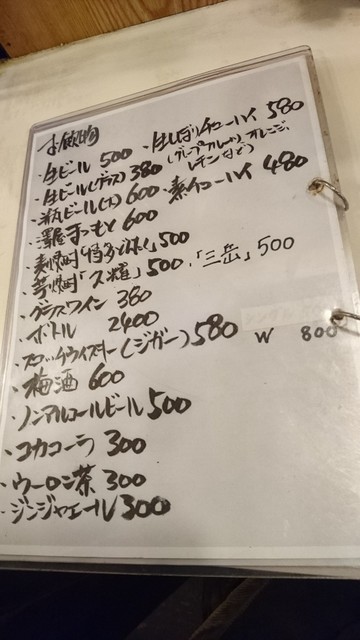 お飲物
・生ビール 500
・生ビール(グラス) 380
・瓶ビール(大) 600
・澤屋まつもと 600
・麦焼酎「特多どんたく」500
・芋焼酎「久耀」500 ・「三岳」500
・グラスワイン 380
・ボトル 2400
・スコッチウイスキー(ジガー) 580 W 800
・梅酒 600
・ノンアルコールビール 500
・コカコーラ 300
・ウーロン茶 300
・ジンジャエール 300
・生しぼりチューハイ 580
(グレープフルーツ、オレンジ、
レモンなど)
・素チューハイ 480